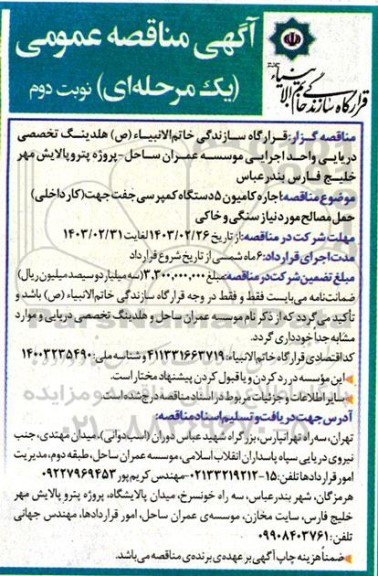 آگهی مناقصه عمومی
(یک مرحله‌ای) نوبت دوم
قرارگاه سازندگی خاتم الانبیاء
مناقصه گزار: قرارگاه سازندگی خاتم‌الانبیاء (ص) هلدینگ تخصصی
دریایی واحد اجرایی موسسه عمران ساحل-پروژه پتروپالایش مهر
خلیج فارس بندرعباس
موضوع مناقصه: اجاره کامیون ۵ دستگاه کمپرسی جفت جهت (کار داخلی)
حمل مصالح مورد نیاز سنگی و خاکی
مهلت شرکت در مناقصه: از تاریخ ۱۴۰۳/۰۲/۲۶ لغایت ۱۴۰۳/۰۲/۳۱
مدت اجرای قرارداد: ۶ ماه شمسی از تاریخ شروع قرارداد
مبلغ تضمین شرکت در مناقصه: مبلغ ۳,۳۰۰,۰۰۰,۰۰۰ (سه میلیارد و سیصد میلیون ریال)
ضمانت‌نامه می‌بایست فقط و فقط در وجه قرارگاه سازندگی خاتم‌الانبیاء (ص) باشد و
تأکید می‌گردد که از ذکر نام موسسه عمران ساحل و هلدینگ تخصصی دریایی و موارد
مشابه جداً خودداری گردد.
کد اقتصادی قرارگاه خاتم‌الانبیاء: ۴۱۱۳۳۱۶۶۳۷۱۹ و شناسه ملی: ۱۴۰۰۳۲۳۵۴۹۰
این موسسه در رد کردن و یا قبول کردن پیشنهاد مختار است.
سایر اطلاعات و جزئیات مربوط در اسناد مناقصه درج شده است.
آدرس جهت دریافت و تسلیم اسناد مناقصه:
تهران، سه‌راه تهرانپارس، بزرگراه شهید عباس دوران (اسب‌دوانی)، میدان مهتدی، جنب
نیروی دریایی سپاه پاسداران انقلاب اسلامی، موسسه عمران ساحل، طبقه دوم، مدیریت
امور قراردادها تلفن: ۱۵-۰۲۱۳۳۲۱۹۲۱۲-مهندس کریم‌پور ۰۹۲۲۷۹۶۹۴۵۳
هرمزگان، شهر بندرعباس، سه راه خونسرخ، میدان پالایشگاه، پروژه پترو پالایش مهر
خلیج فارس، سایت مخازن، موسسه‌ی عمران ساحل، امور قراردادها، مهندس جهانی
تلفن: ۰۹۹۰۸۴۰۳۷۶۱
ضمناً هزینه چاپ آگهی بر عهده‌ی برنده‌ی مناقصه می‌باشد.